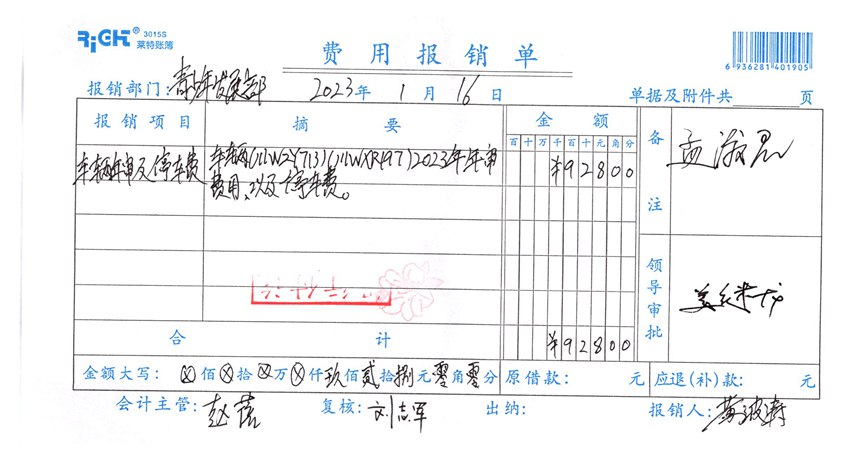 RiGHT® 3015S
莱特账簿
费用报销单
6 936281 401905
报销部门: 青少年发展部 2023年 1月 16日 单据及附件共 页
报销项目 摘要 金额 备注
百十万千百十元角分
车辆年审及停车费 车辆(川W2Y713)(川WXR197)2023年年审 ¥92800
费用、以及停车费。
领导审批
合计 ¥92800
金额大写: ⊗佰⊗拾⊗万⊗仟玖佰贰拾捌元零角零分 原借款: 元 应退(补)款: 元
会计主管: 赵蓓 复核: 刘志军 出纳: 报销人: 黄波涛